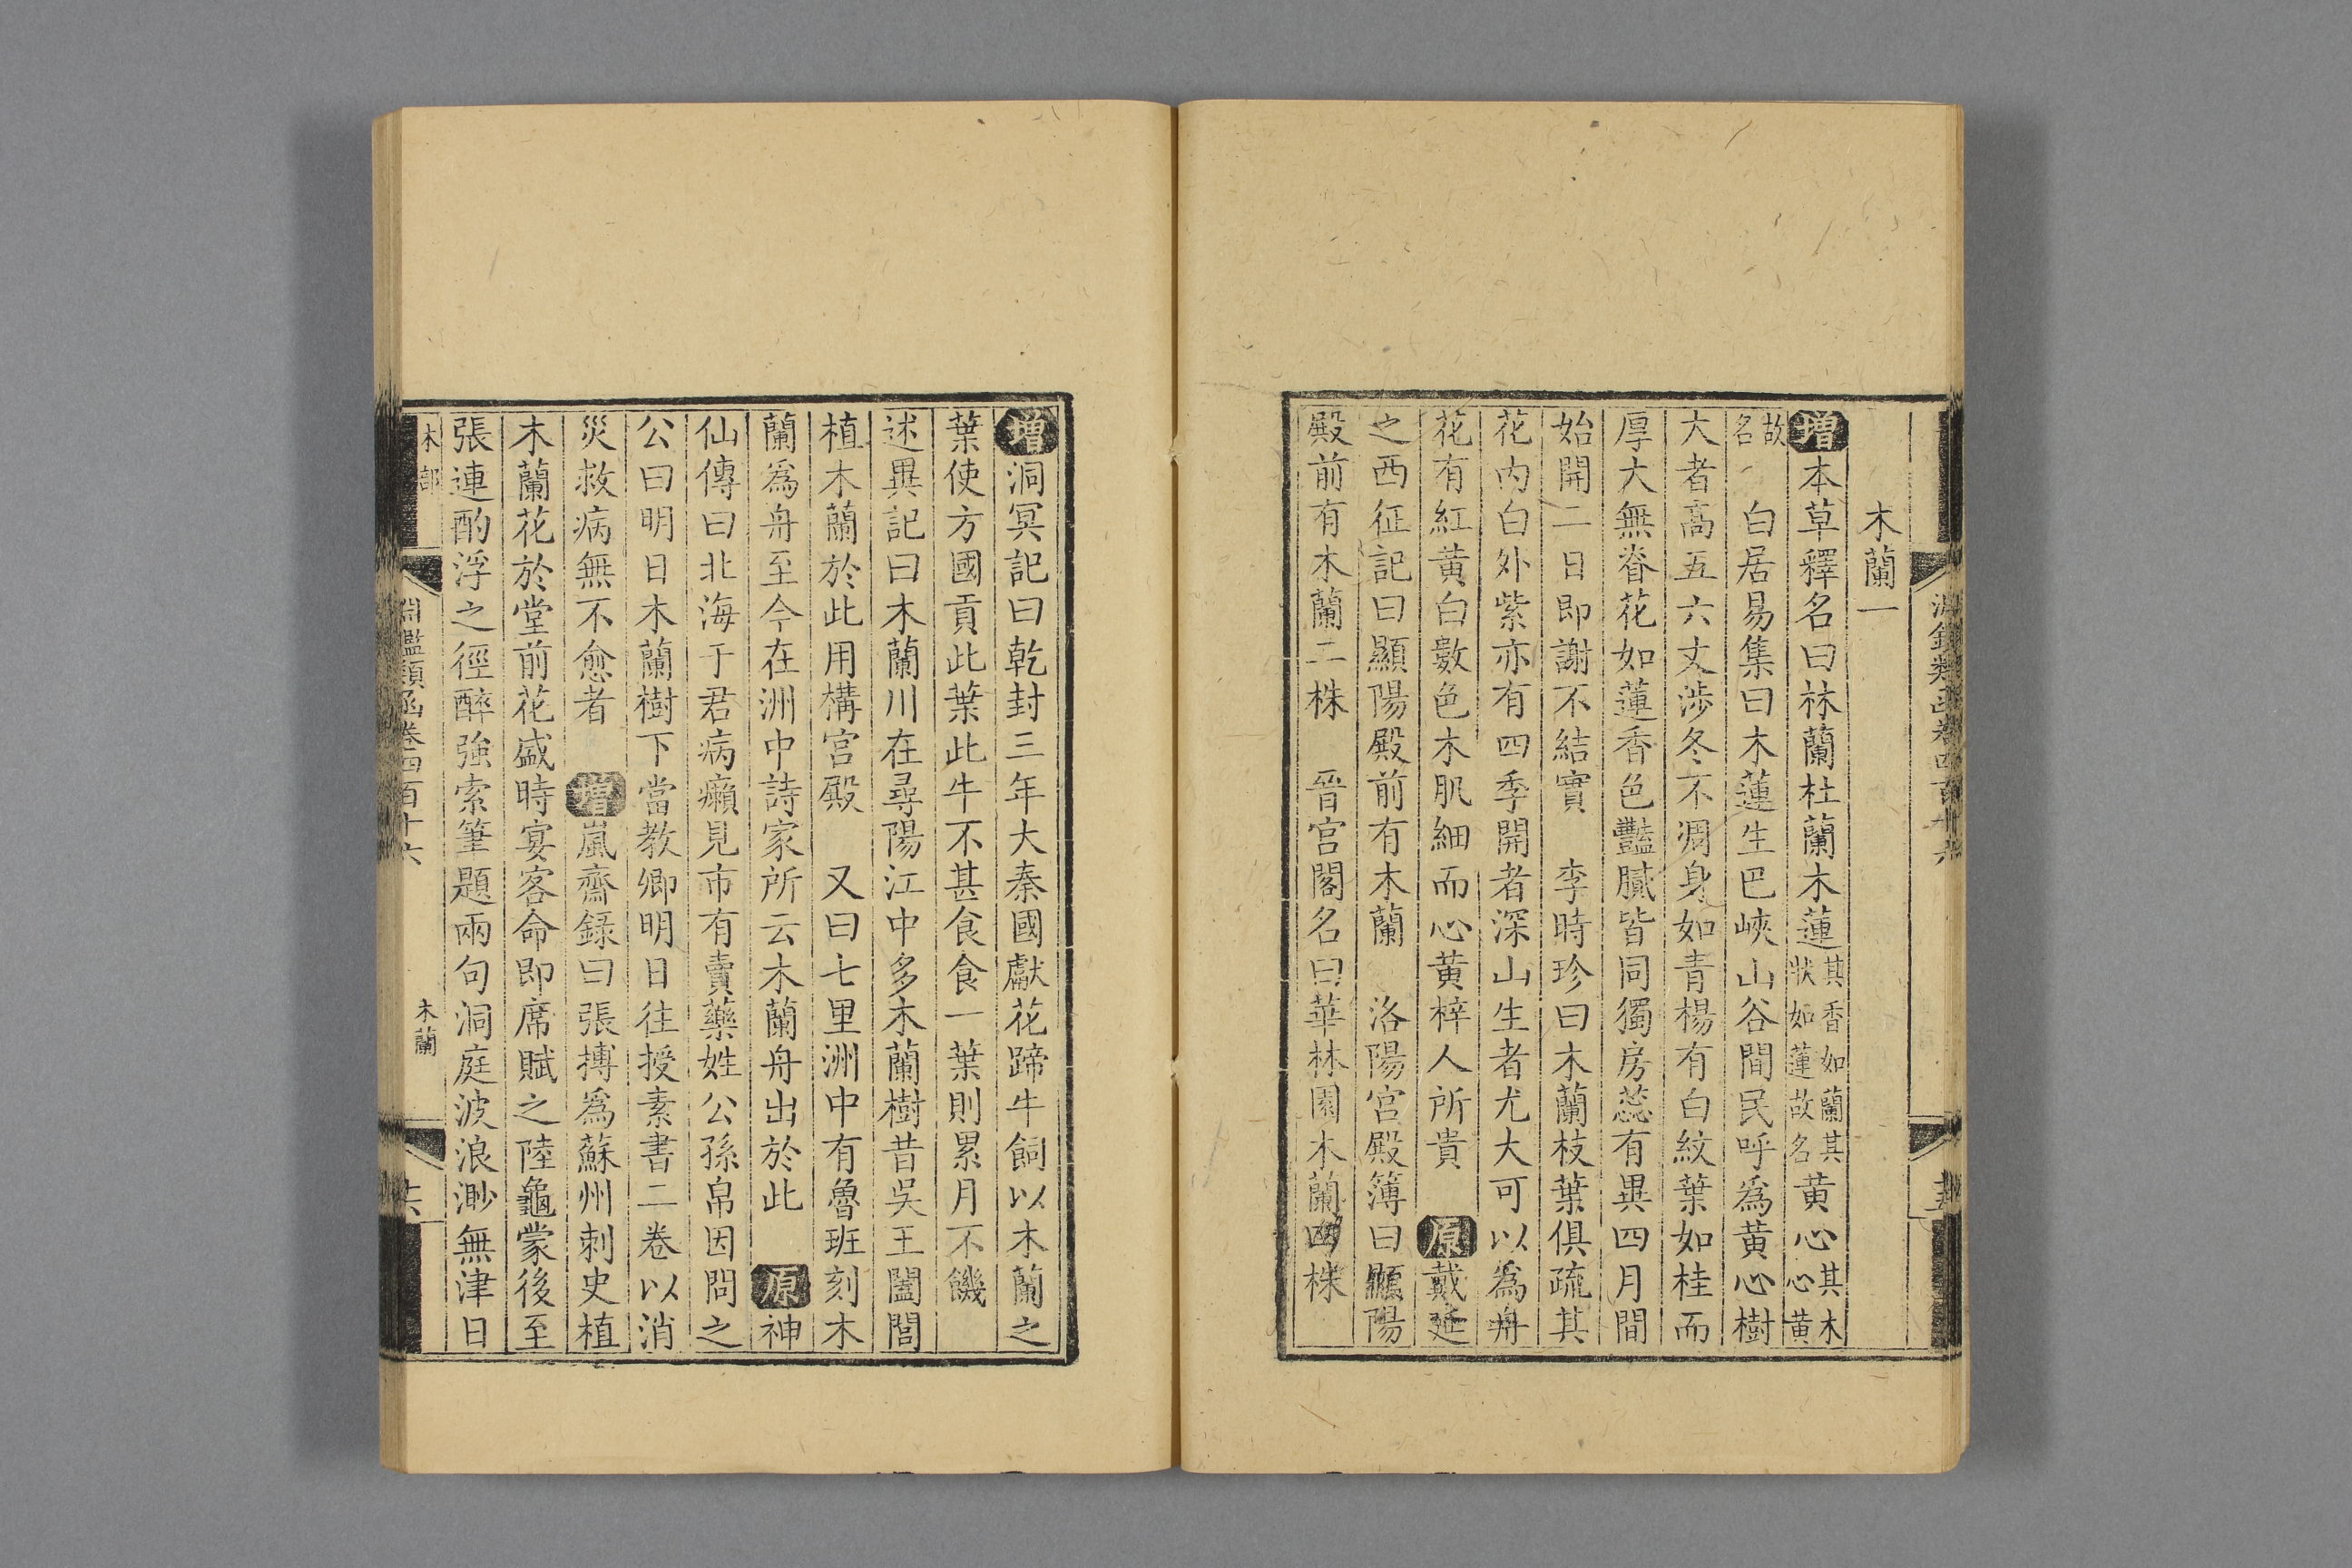 淵鑑類函卷四百十六
木蘭一
增本草釋名曰林蘭杜蘭木蓮其香如蘭其狀如蓮故名黃心其木心黃
故名 白居易集曰木蓮生巴峽山谷間民呼爲黃心樹
大者高五六丈涉冬不凋身如青楊有白紋葉如桂而
厚大無脊花如蓮香色豔膩皆同獨房蕊有異四月間
始開二日即謝不結實 李時珍曰木蘭枝葉俱疏其
花內白外紫亦有四季開者深山生者尤大可以爲舟
花有紅黃白數色木肌細而心黃梓人所貴 原戴延
之西征記曰顯陽殿前有木蘭 洛陽宮殿簿曰顯陽
殿前有木蘭二株 晉宮閣名曰華林園木蘭四株
增洞冥記曰乾封三年大秦國獻花蹄牛飼以木蘭之
葉使方國貢此葉此牛不甚食食一葉則累月不饑
述異記曰木蘭川在尋陽江中多木蘭樹昔吳王闔閭
植木蘭於此用構宮殿 又曰七里洲中有魯班刻木
蘭爲舟至今在洲中詩家所云木蘭舟出於此 原神
仙傳曰北海于君病癩見市有賣藥姓公孫帛因問之
公曰明日木蘭樹下當教卿明日往授素書二卷以消
災救病無不愈者 增嵐齋錄曰張摶爲蘇州刺史植
木蘭花於堂前花盛時宴客命即席賦之陸龜蒙後至
張連酌浮之徑醉強索筆題兩句洞庭波浪渺無津日
木部
淵鑑類函卷四百十六
木蘭